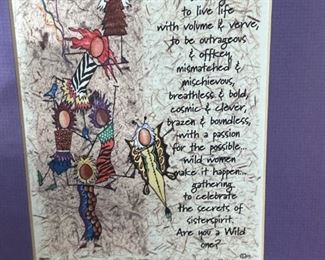 to live life
with volume & verve,
to be outrageous
& offkey,
mismatched &
mischievous,
breathless & bold,
cosmic & clever,
brazen & boundless,
with a passion
for the possible...
wild women
make it happen...
gathering
to celebrate
the secrets of
sisterspirit.
Are you a Wild
one?